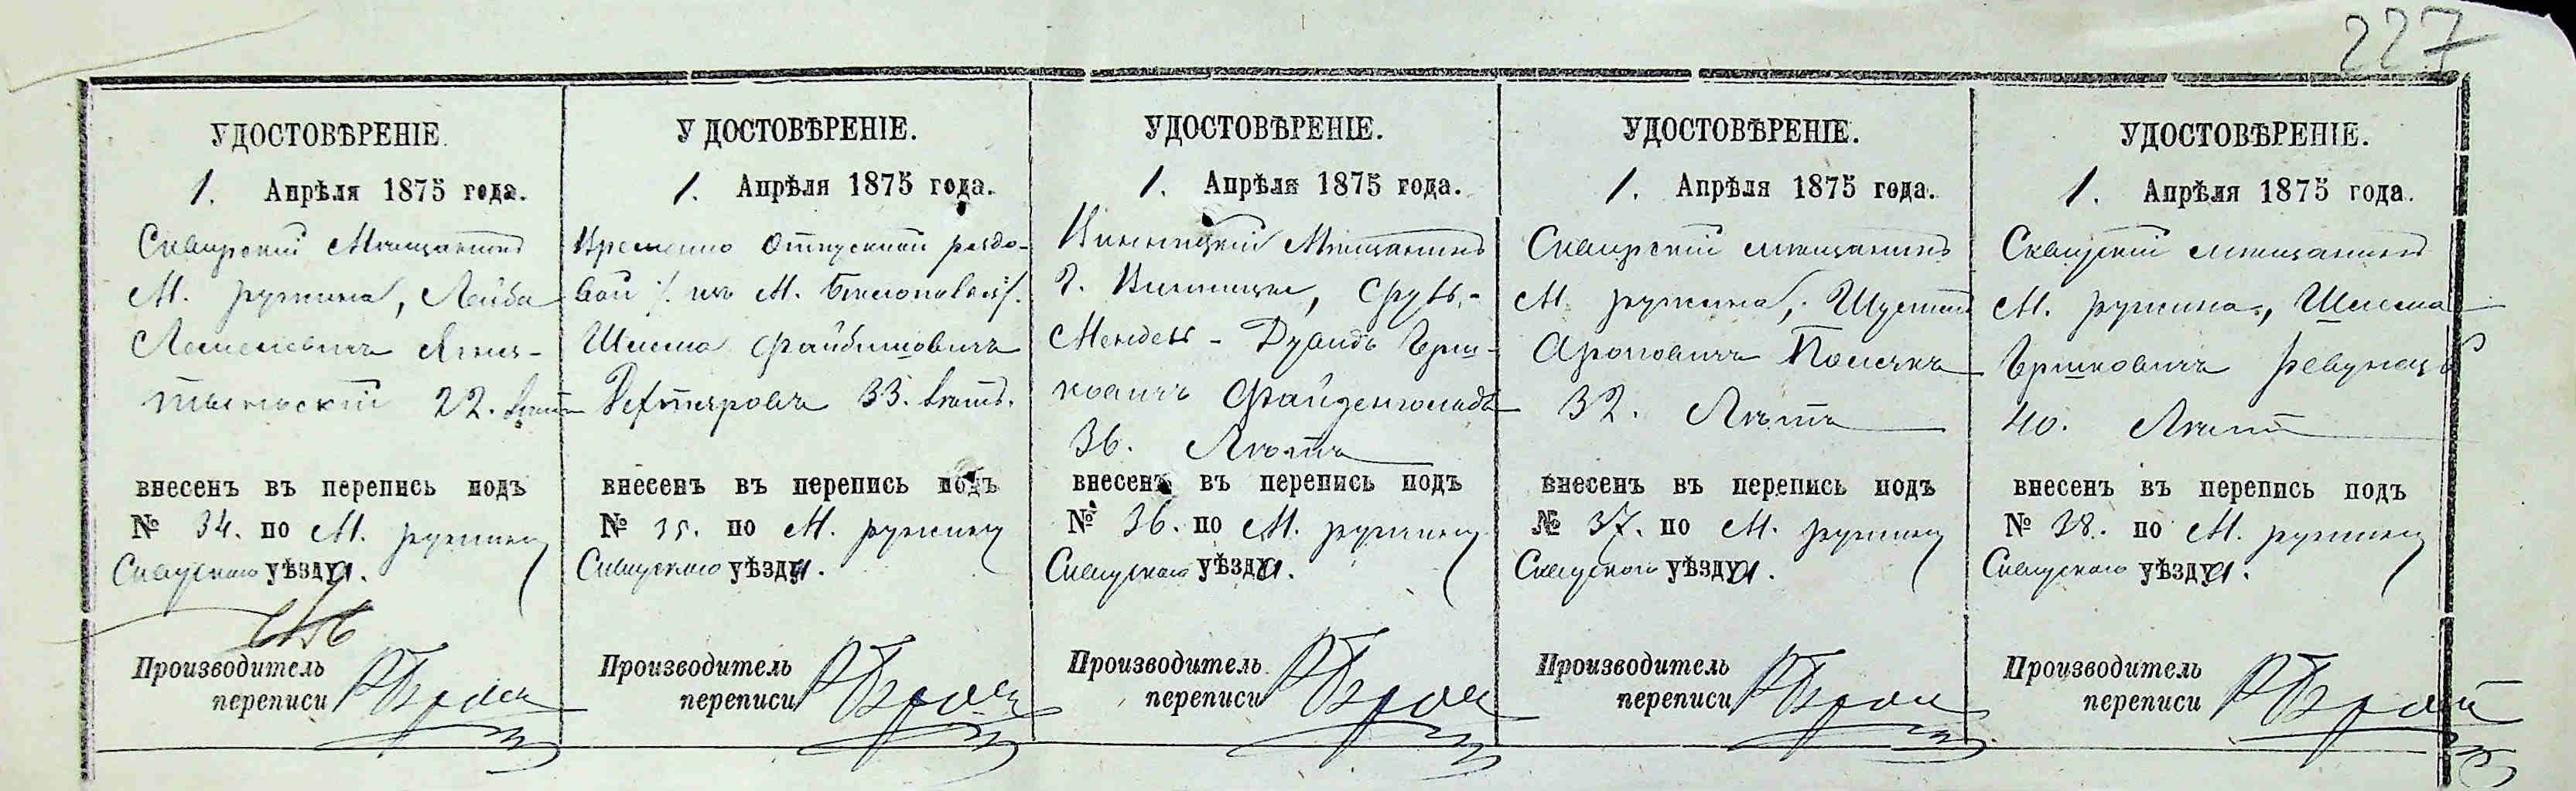 227
УДОСТОВѢРЕНІЕ.
1. Апрѣля 1875 года.
Сквирскій Мѣщанинъ
М. Ружина, Лейба
22. лѣтъ
внесенъ въ перепись подъ
№ 34. по М. Ружину
Сквирскаго уѣзда.
Производитель
переписи
УДОСТОВѢРЕНІЕ.
1. Апрѣля 1875 года.
Временно Отпускной рядо-
вой изъ М.
Шлема Файбишовичъ
33. лѣтъ.
внесенъ въ перепись подъ
№ 35. по М. Ружину
Сквирскаго уѣзда.
Производитель
переписи
УДОСТОВѢРЕНІЕ.
1. Апрѣля 1875 года.
Винницкій Мѣщанинъ
г. Винницы,
Мендель - Гер-
шковичъ
36. Лѣтъ
внесенъ въ перепись подъ
№ 36. по М. Ружину
Сквирскаго уѣзда.
Производитель
переписи
УДОСТОВѢРЕНІЕ.
1. Апрѣля 1875 года.
Сквирскій мѣщанинъ
М. Ружина,
Ароновичъ Полякъ
32. Лѣтъ
внесенъ въ перепись подъ
№ 37. по М. Ружину
Сквирскаго уѣзда.
Производитель
переписи
УДОСТОВѢРЕНІЕ.
1. Апрѣля 1875 года.
Сквирскій мѣщанинъ
М. Ружина, Шлема
Гершковичъ
40. Лѣтъ
внесенъ въ перепись подъ
№ 38. по М. Ружину
Сквирскаго уѣзда.
Производитель
переписи